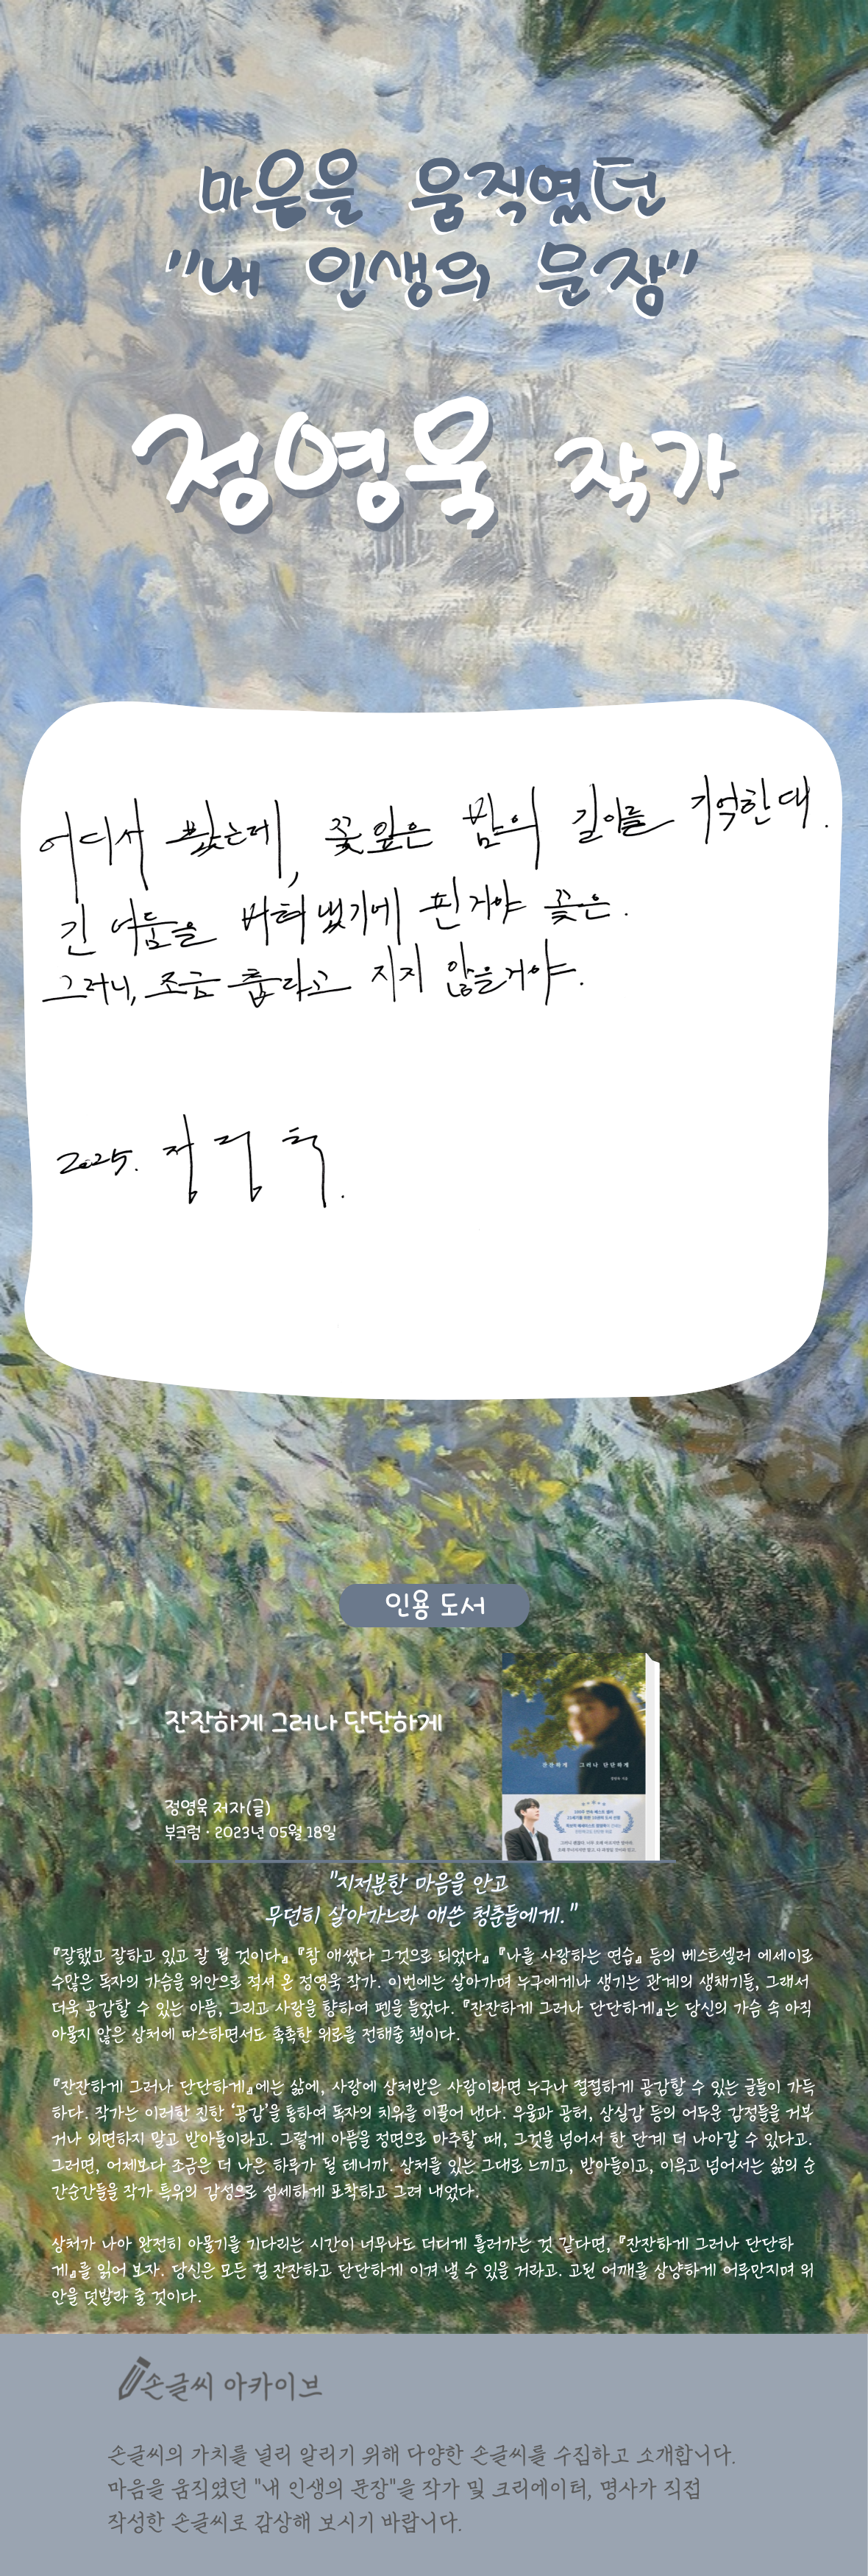 마음을 움직였던
"내 인생의 문장"
정영욱 작가
어디서 봤는데, 꽃잎은 밤의 길이를 기억한대.
긴 어둠을 버텨냈기에 핀거야 꽃은.
그러니, 조금 춥다고 지지 않을거야.
2025. 정영욱.
인용 도서
잔잔하게 그러나 단단하게
정영욱 저자(글)
부크럼 · 2023년 05월 18일
잔잔하게 그러나 단단하게
"지저분한 마음을 안고
무던히 살아가느라 애쓴 청춘들에게."
『잘했고 잘하고 있고 잘 될 것이다』 『참 애썼다 그것으로 되었다』 『나를 사랑하는 연습』 등의 베스트셀러 에세이로
수많은 독자의 가슴을 위안으로 적셔 온 정영욱 작가. 이번에는 살아가며 누구에게나 생기는 관계의 생채기들, 그래서
더욱 공감할 수 있는 아픔, 그리고 사랑을 향하여 펜을 들었다. 『잔잔하게 그러나 단단하게』는 당신의 가슴 속 아직
아물지 않은 상처에 따스하면서도 촉촉한 위로를 전해줄 책이다.
『잔잔하게 그러나 단단하게』에는 삶에, 사랑에 상처받은 사람이라면 누구나 절절하게 공감할 수 있는 글들이 가득
하다. 작가는 이러한 진한 '공감'을 통하여 독자의 치유를 이끌어 낸다. 우울과 공허, 상실감 등의 어두운 감정들을 거부
거나 외면하지 말고 받아들이라고. 그렇게 아픔을 정면으로 마주할 때, 그것을 넘어서 한 단계 더 나아갈 수 있다고.
그러면, 어제보다 조금은 더 나은 하루가 될 테니까. 상처를 있는 그대로 느끼고, 받아들이고, 이윽고 넘어서는 삶의 순
간순간들을 작가 특유의 감성으로 섬세하게 포착하고 그려 내었다.
상처가 나아 완전히 아물기를 기다리는 시간이 너무나도 더디게 흘러가는 것 같다면, 『잔잔하게 그러나 단단하
게』를 읽어 보자. 당신은 모든 걸 잔잔하고 단단하게 이겨 낼 수 있을 거라고. 고된 어깨를 상냥하게 어루만지며 위
안을 덧발라 줄 것이다.
손글씨 아카이브
손글씨의 가치를 널리 알리기 위해 다양한 손글씨를 수집하고 소개합니다.
마음을 움직였던 "내 인생의 문장"을 작가 및 크리에이터, 명사가 직접
작성한 손글씨로 감상해 보시기 바랍니다.